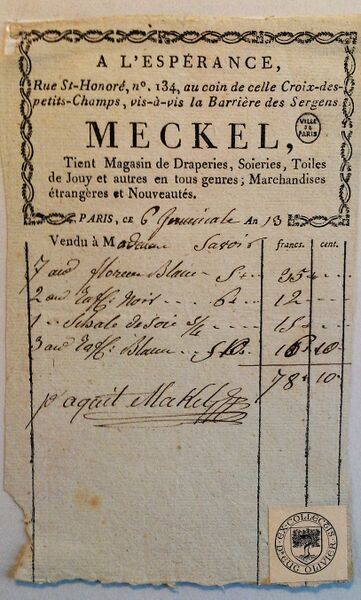 A L'ESPÉRANCE,
Rue St-Honoré, nº. 134, au coin de celle Croix-des-
petits-Champs, vis-à-vis la Barrière des Sergens.
MECKEL,
VILLE DE PARIS
Tient Magasin de Draperies, Soieries, Toiles
de Jouy et autres en tous genres; Marchandises
étrangères et Nouveautés.
PARIS, CE 6 Germinale An 13
Vendu à Madame Savoir francs. cent.
7 au florence Blanc - 5 - 35
2 au taff. noir - 6 - 12
1 - Schale de soie 5/4 15
3 au taff. Blanc 16 10
78 10
p. aquit Mekel
EX-COLLECTIS
D'EUG OLIVIER